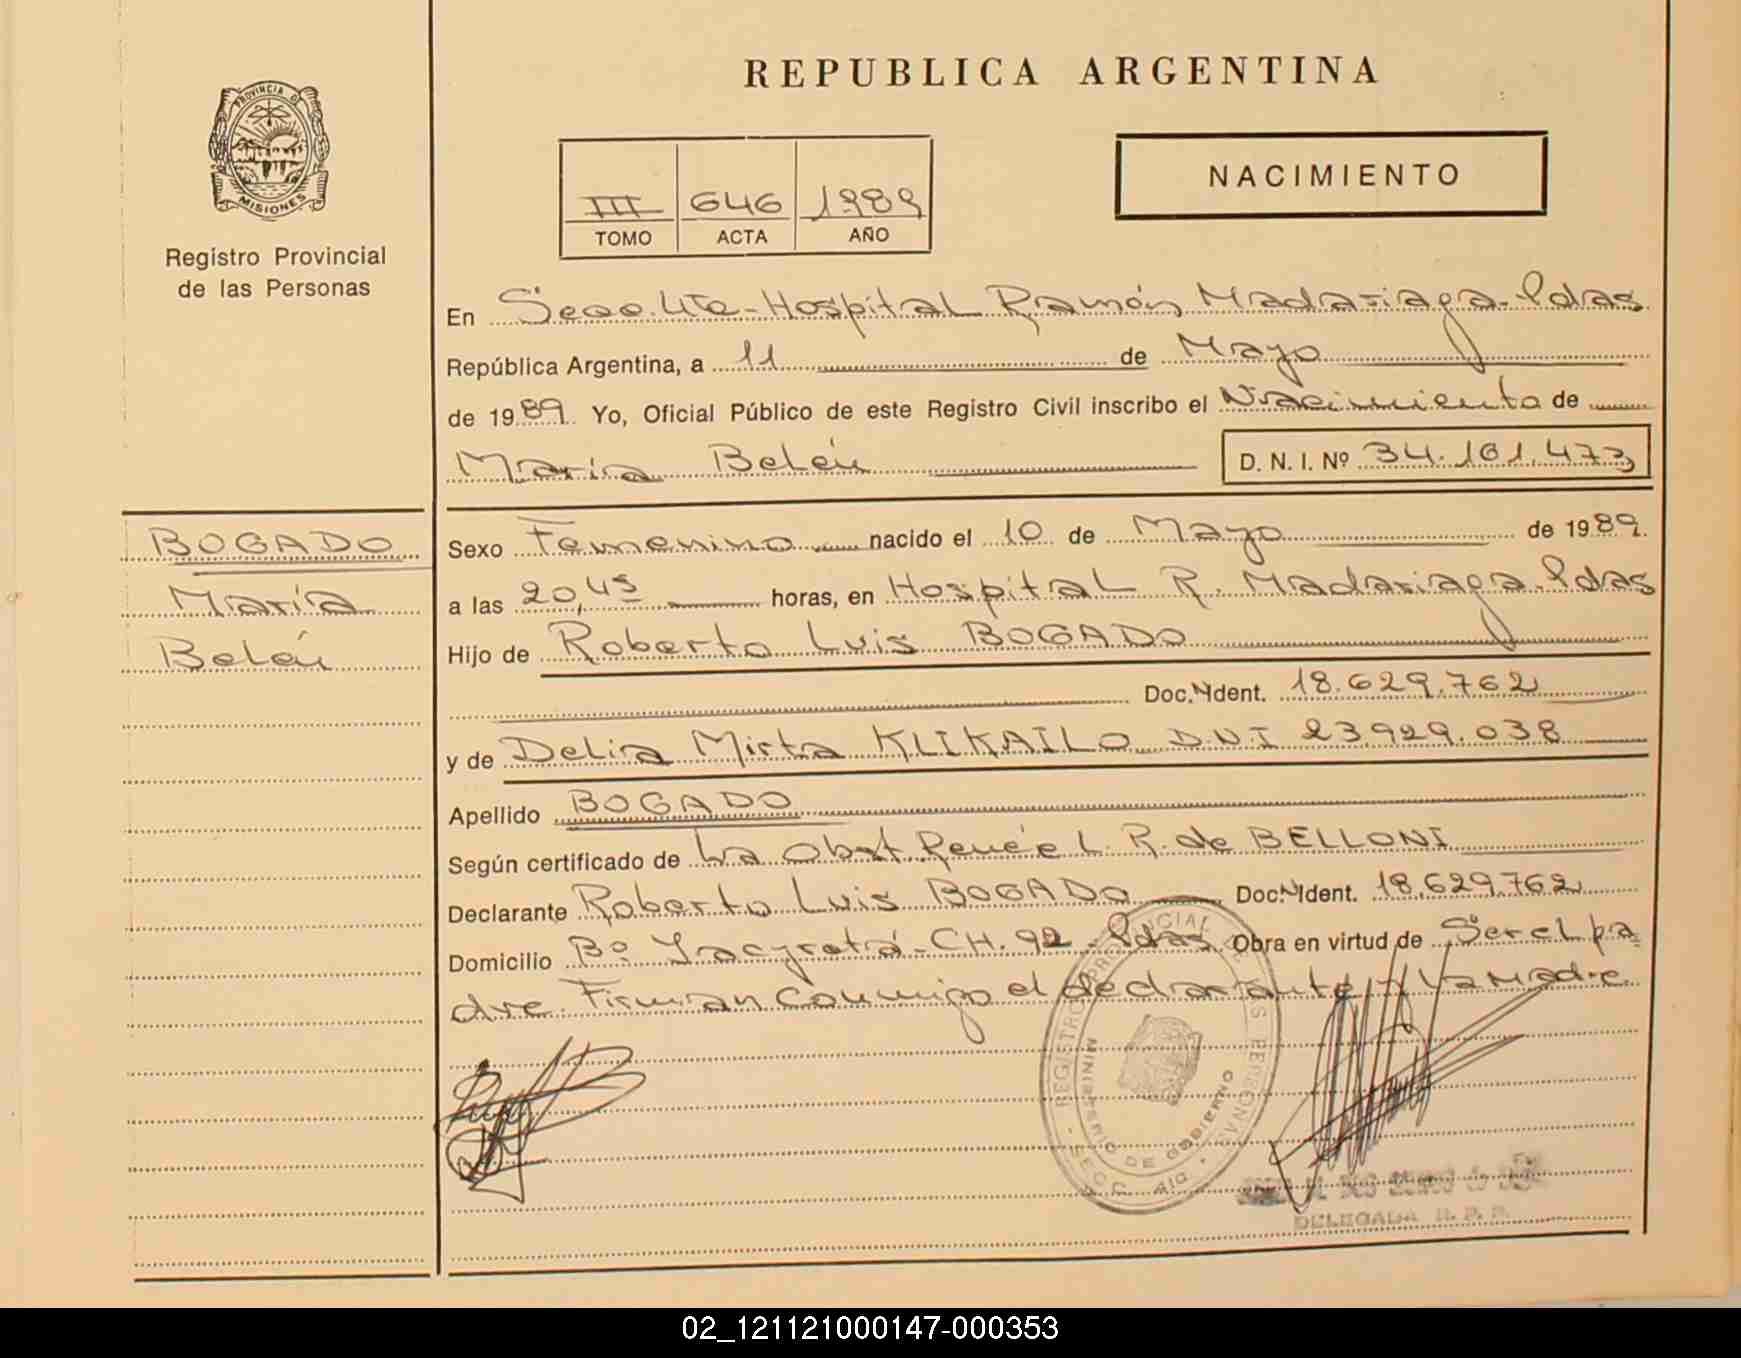 REPUBLICA ARGENTINA
PROVINCIA DE
MISIONES
Registro Provincial
de las Personas
NACIMIENTO
III 646 1989
TOMO ACTA AÑO
En Secc. 4ta-Hospital Ramón Madariaga-Pdas
República Argentina, a 11 de Mayo
de 1989. Yo, Oficial Público de este Registro Civil inscribo el Nacimiento de
María Belén D. N. I. Nº 34.161.473
BOGADO
María
Belén
Sexo Femenino nacido el 10 de Mayo de 1989.
a las 20,45 horas, en Hospital R. Madariaga-Pdas
Hijo de Roberto Luis BOGADO
Doc. N Ident. 18.629.762
y de Delia Mirta KLIKAILO D.N.I 23.929.038
Apellido BOGADO
Según certificado de La Obst Renée L. R. de BELLONI
Declarante Roberto Luis BOGADO Doc. N Ident. 18.629.762
Domicilio Bº Yacyretá-CH. 92-Pdas. Obra en virtud de Ser el pa
dre. Firman conmigo el declarante y la Madre
REGISTRO PROVINCIAL DE LAS PERSONAS
MINISTERIO DE GOBIERNO
SECC. 4ta
DELEGADA R. P. P.
02_121121000147-000353